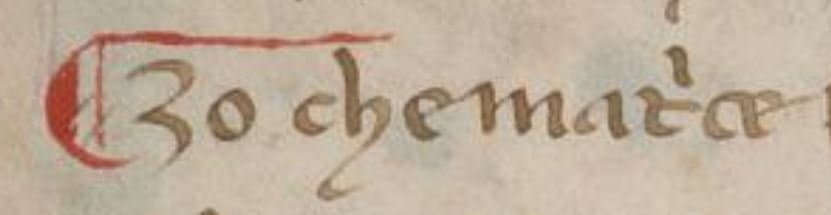 ¶ Zo che mat̾ce